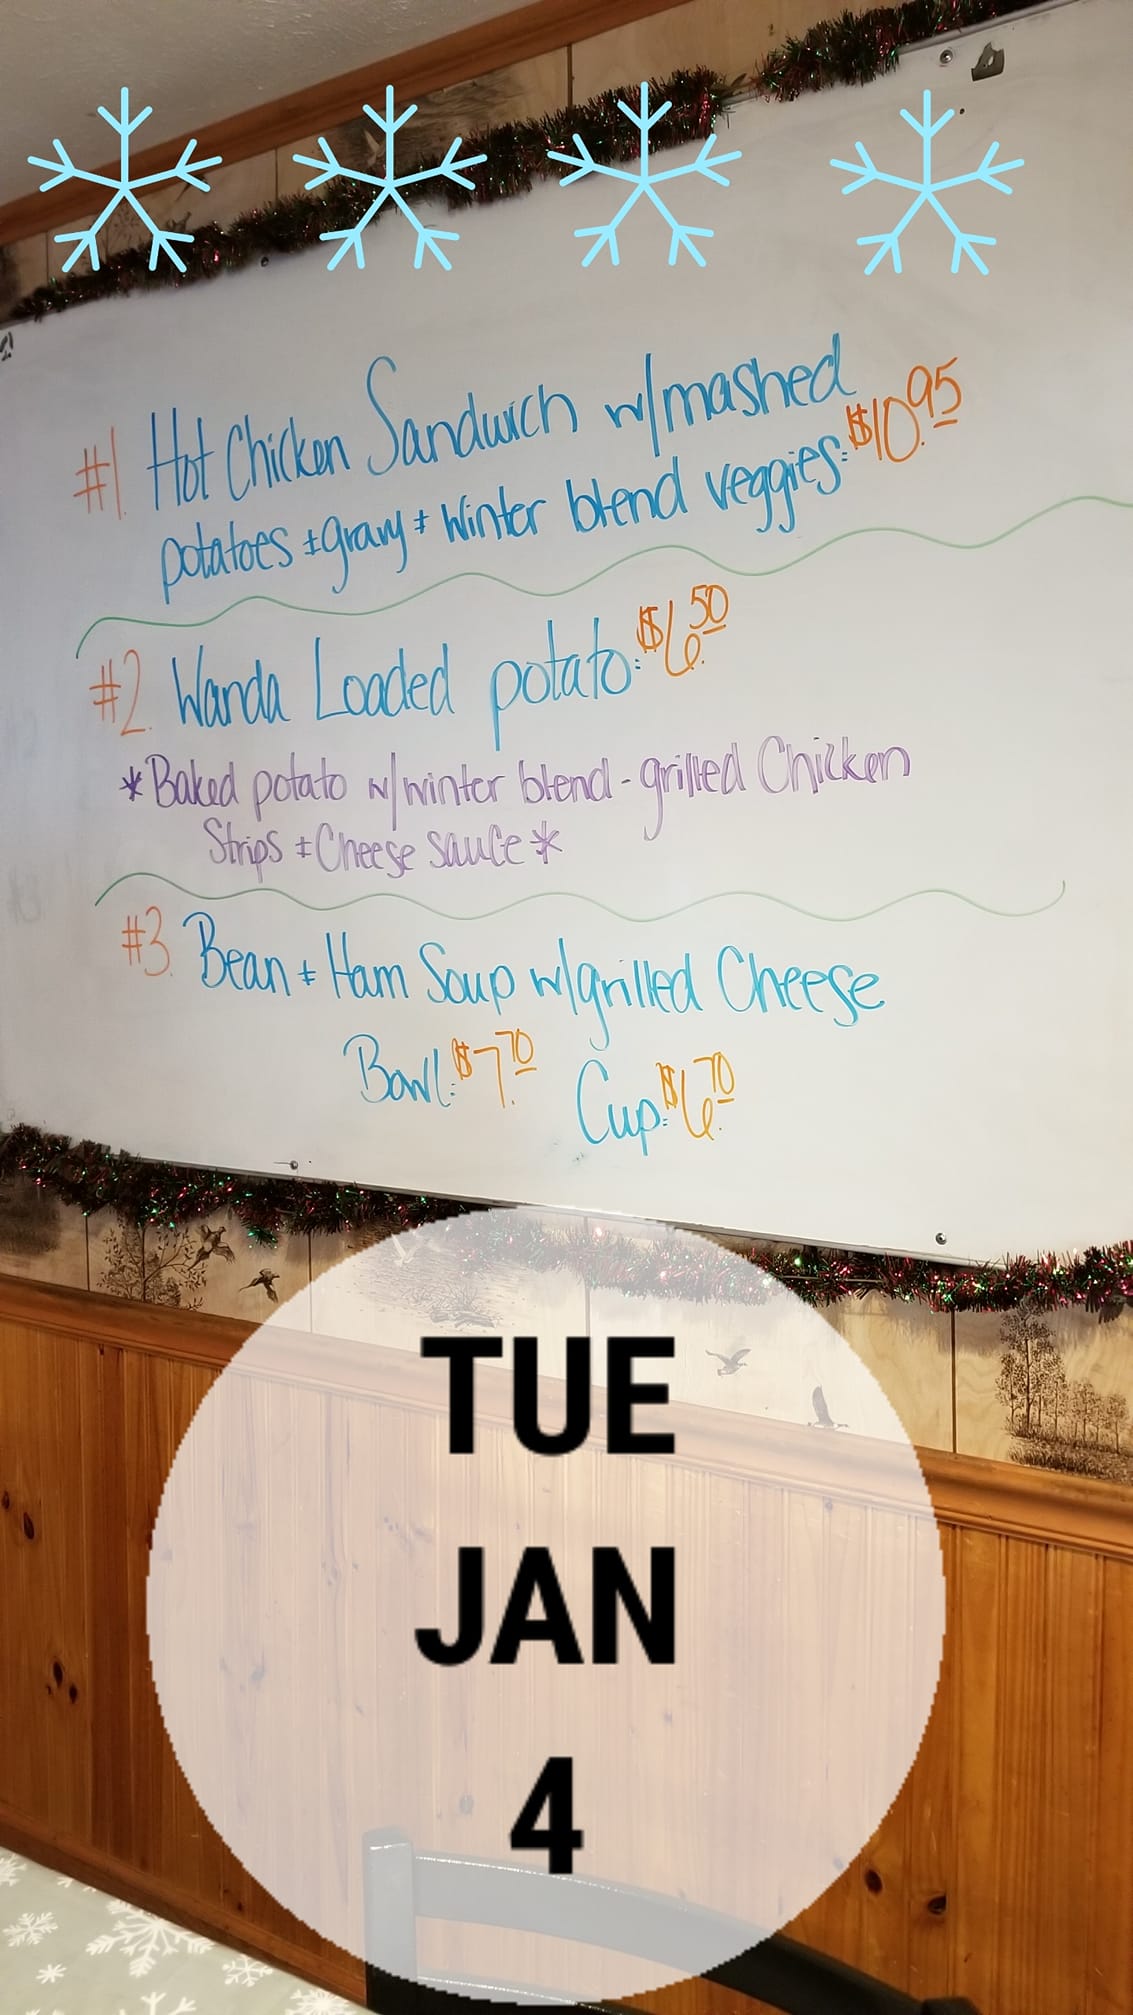 #1. Hot Chicken Sandwich w/mashed
potatoes + gravy + Winter blend veggies: $10.95
#2. Wanda Loaded potato: $6.50
*Baked potato w/winter blend - grilled Chicken
Strips + Cheese sauce*
#3. Bean + Ham Soup w/grilled Cheese
Bowl: $7.70 Cup: $6.70
TUE
JAN
4